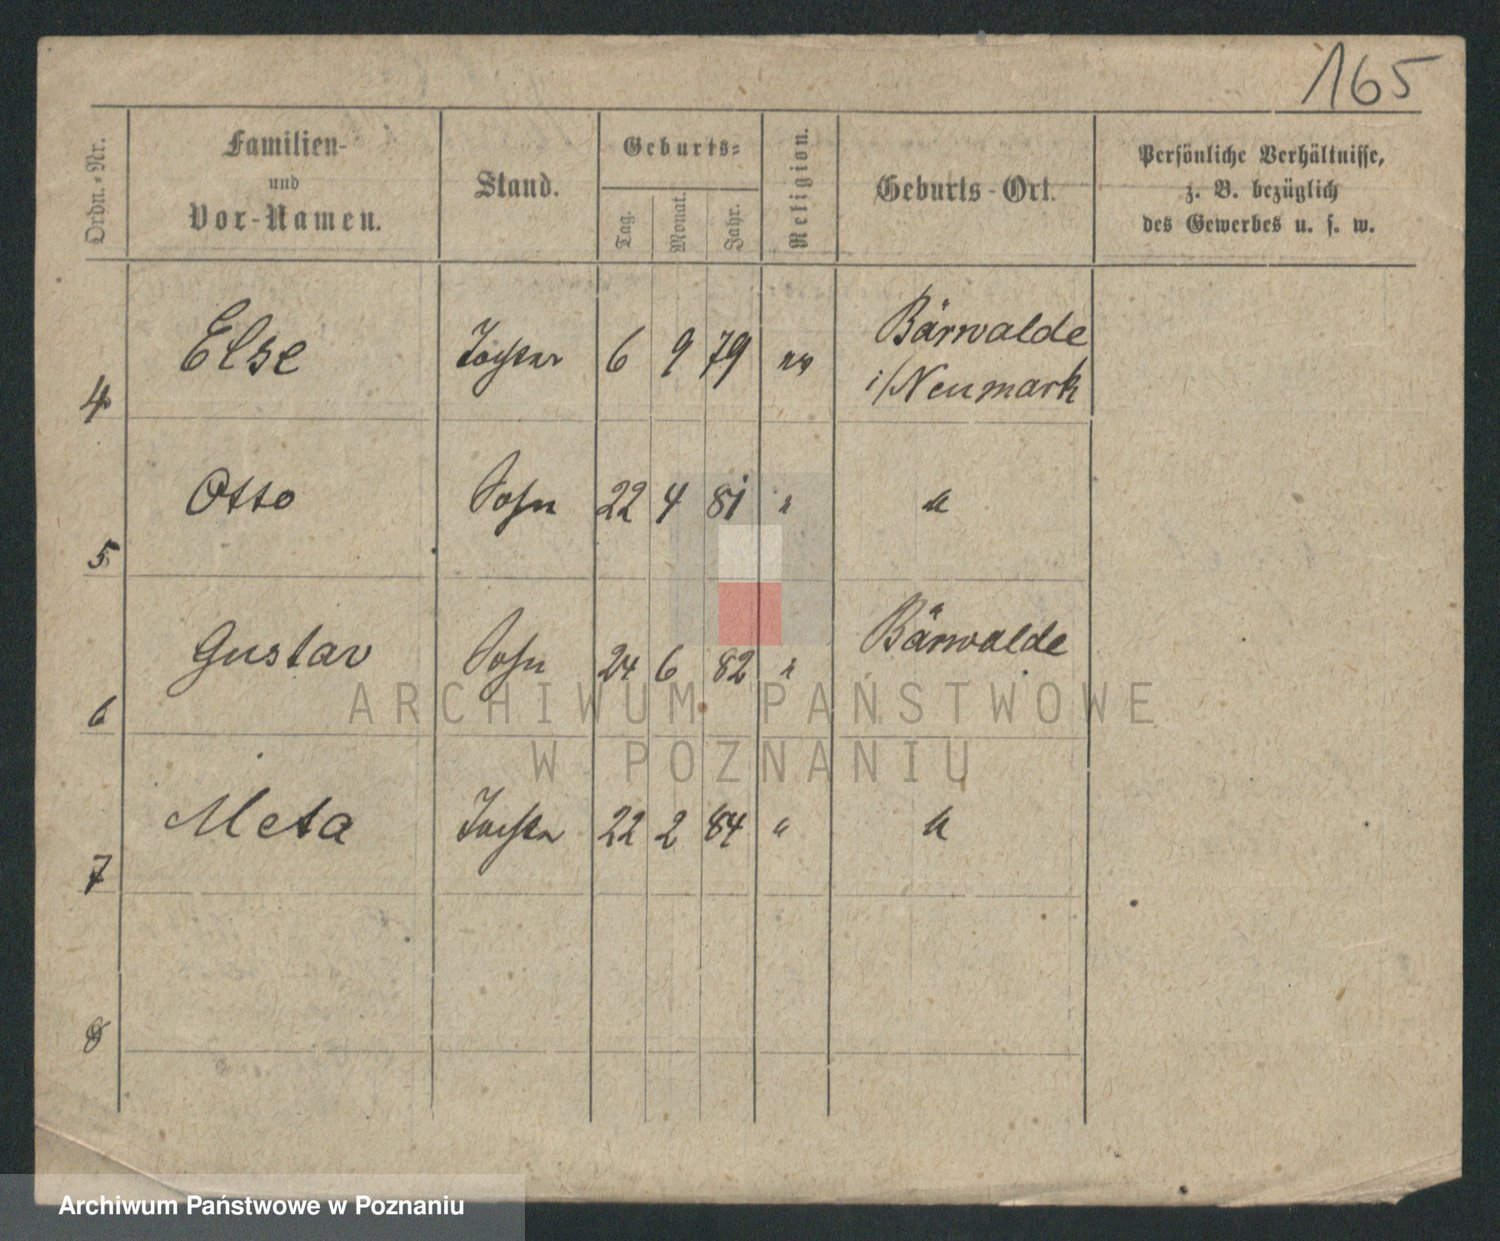 165
Ordn.-Nr.
Familien-
und
Vor-Namen.
Stand.
Geburts-
Tag.
Monat.
Jahr.
Religion.
Geburts-Ort.
Persönliche Verhältnisse,
z. B. bezüglich
des Gewerbes u. s. w.
4 Else Tochter 6 9 79 ev Bärwalde
i/Neumark
5 Otto Sohn 22 4 81 " "
6 Gustav Sohn 24 6 82 " Bärwalde
7 Meta Tochter 22 2 84 " "
8
ARCHIWUM PAŃSTWOWE
W POZNANIU
Archiwum Państwowe w Poznaniu